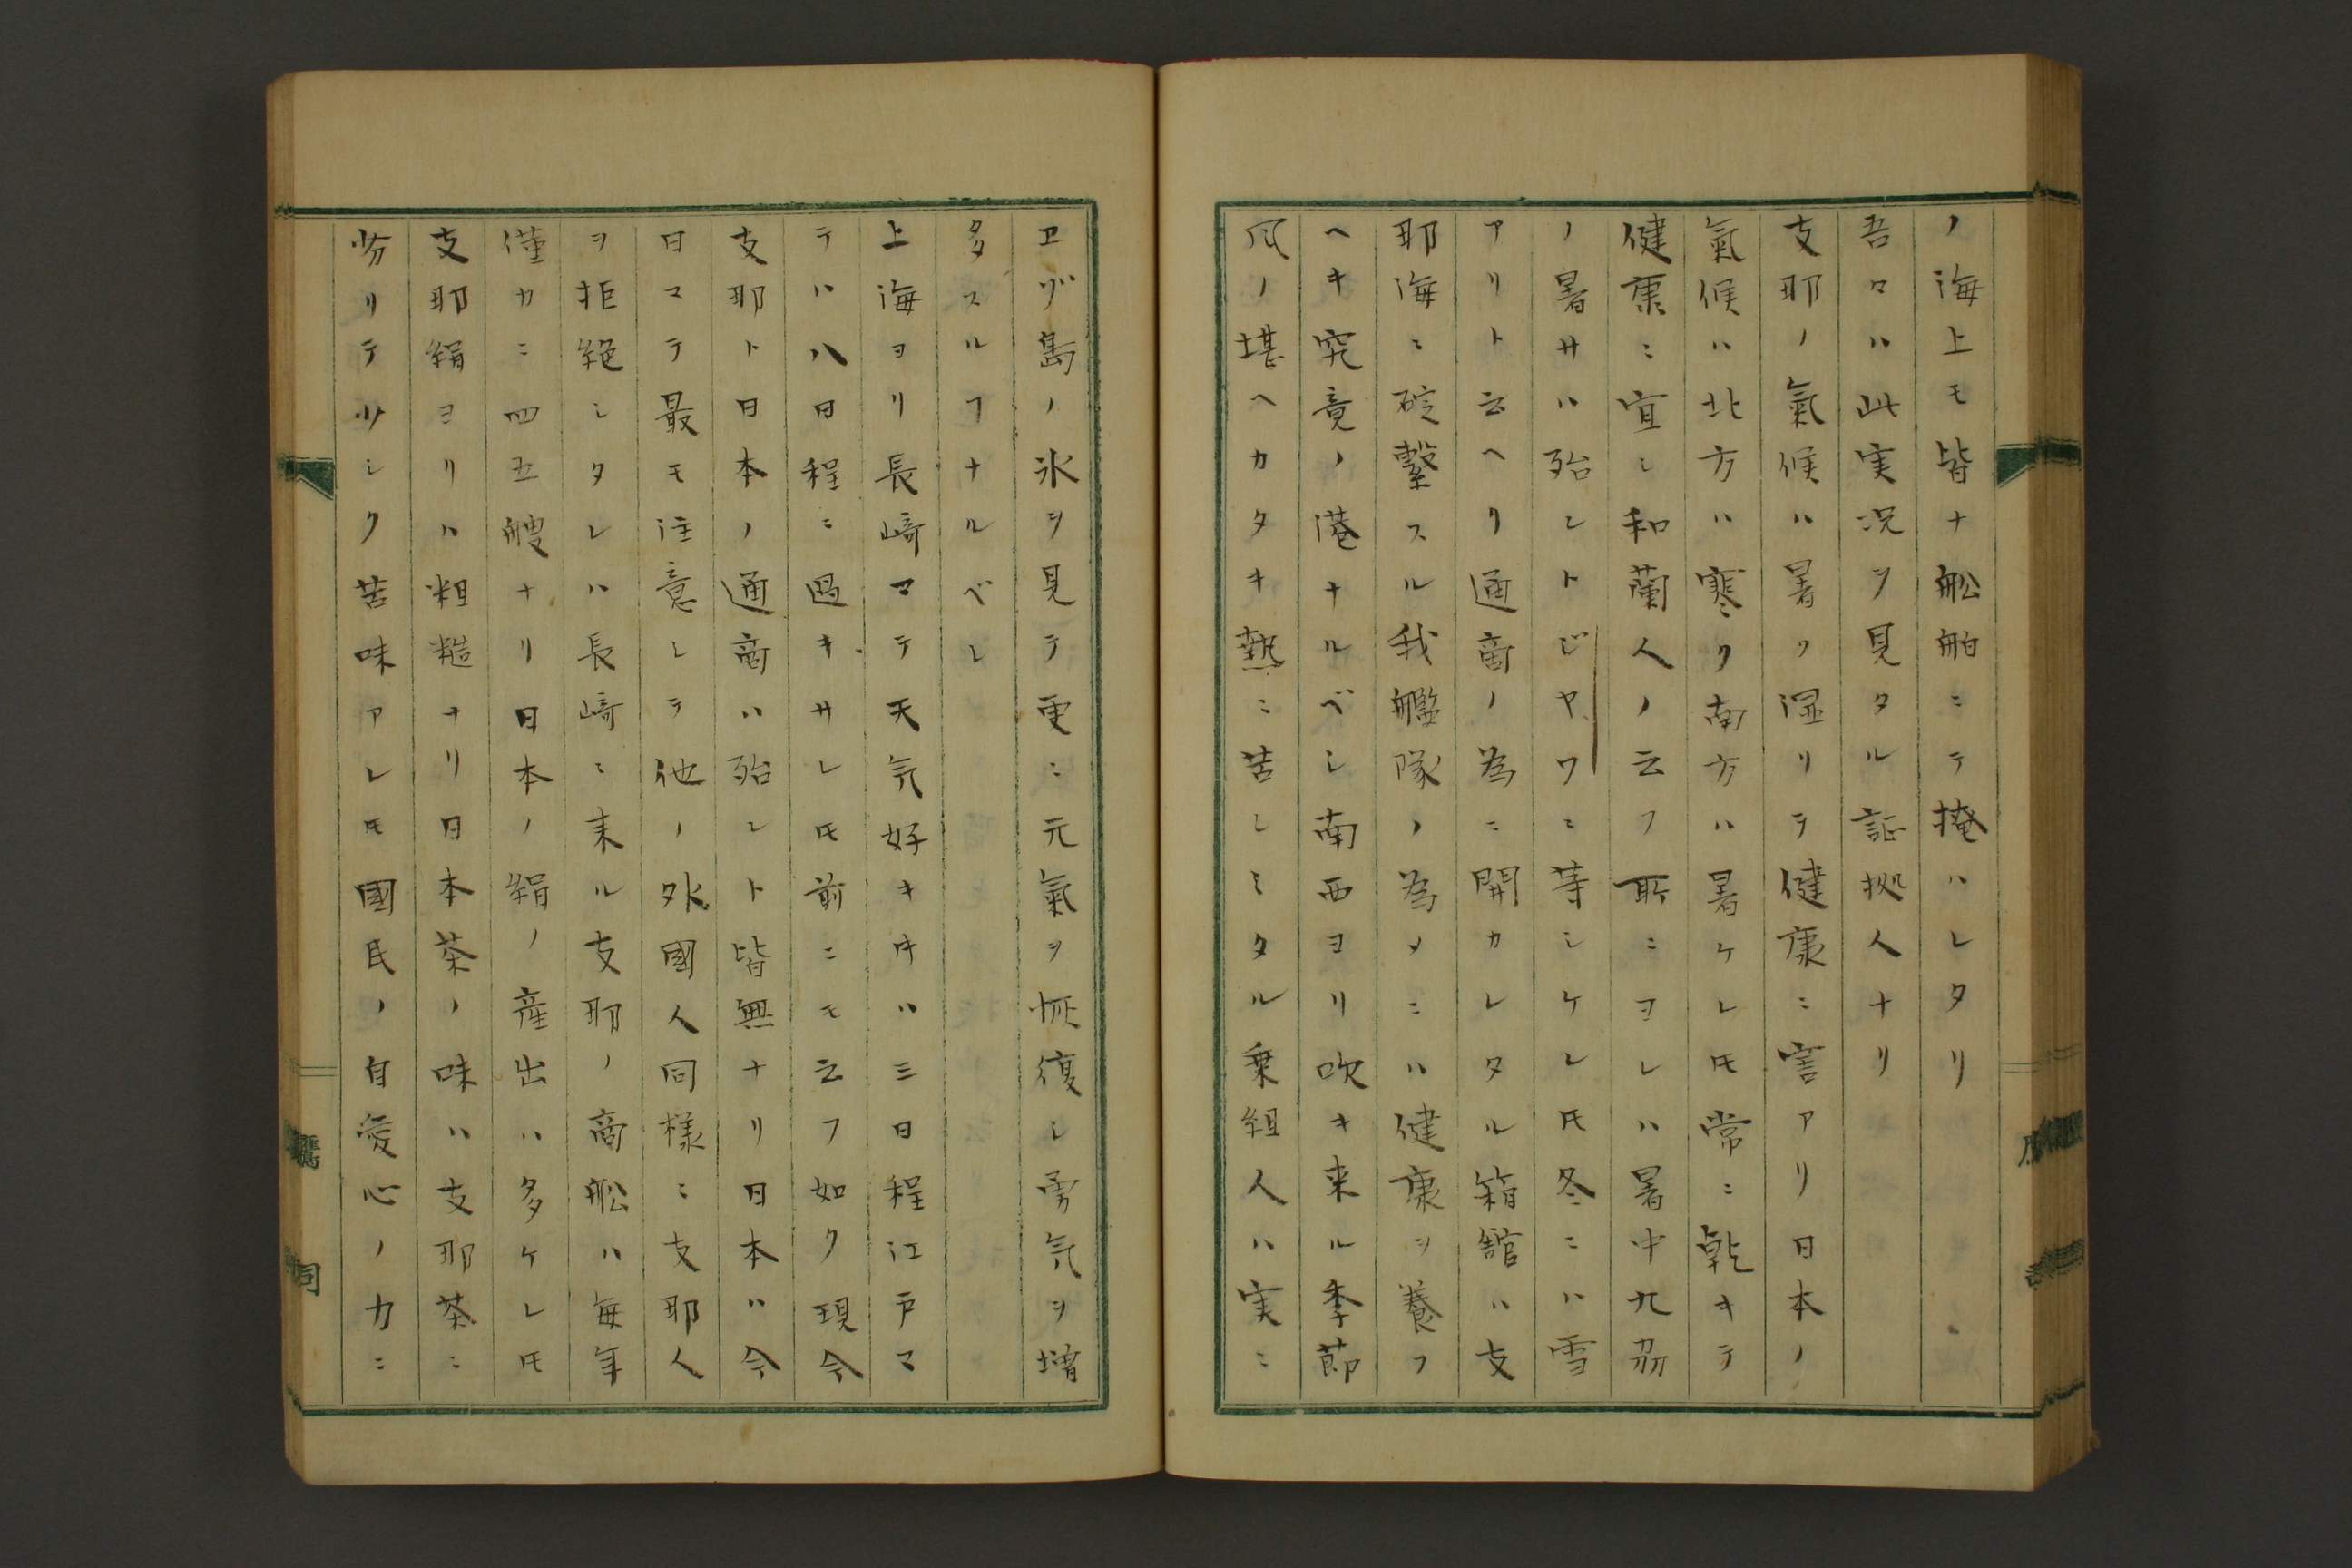 ノ海上モ皆ナ舩舶ニテ掩ハレタリ
吾ロハ此実况ヲ見タル証拠人ナリ
支耶ノ氣候ハ暑ク湿リテ健康ニ害アリ日本ノ
氣候ハ北方ハ寒ク南方ハ暑ケレ𪜈常ニ乾キテ
健康ニ宜シ和蘭人ノ云フ所ニヨレハ暑中九刕
ノ暑サハ殆ントジヤワニ等シケレ𪜈冬ニハ雪
アリト云ヘリ通商ノ為ニ開カレタル箱舘ハ支
耶海ニ碇繫スル我艦隊ノ為メニハ健康ヲ養フ
ヘキ究竟ノ港ナルベシ南西ヨリ吹キ来ル季節
风ノ堪ヘカタキ熱ニ苦シミタル乗組人ハ実ニ
ヱゾ島ノ氷ヲ見テ更ニ元氣ヲ恢復シ勇気ヲ増
多スルフナルベシ
上海ヨリ長﨑マテ天気好キ中ハ三日程江戸マ
テハ八日程ニ過キサレ𪜈前ニモ云フ如ク現今
支耶ト日本ノ通商ハ殆ント皆無ナリ日本ハ今
日マテ最モ注意シテ他ノ外國人同様ニ支耶人
ヲ拒絶シタレハ長﨑ニ来ル支耶ノ商舩ハ毎年
僅カニ四五艘ナリ日本ノ絹ノ産出ハ多ケレ𪜈
支耶絹ヨリハ粗糙ナリ日本茶ノ味ハ支耶茶ニ
劣リテ少シク苦味アレ𪜈國民ノ自愛心ノ力ニ